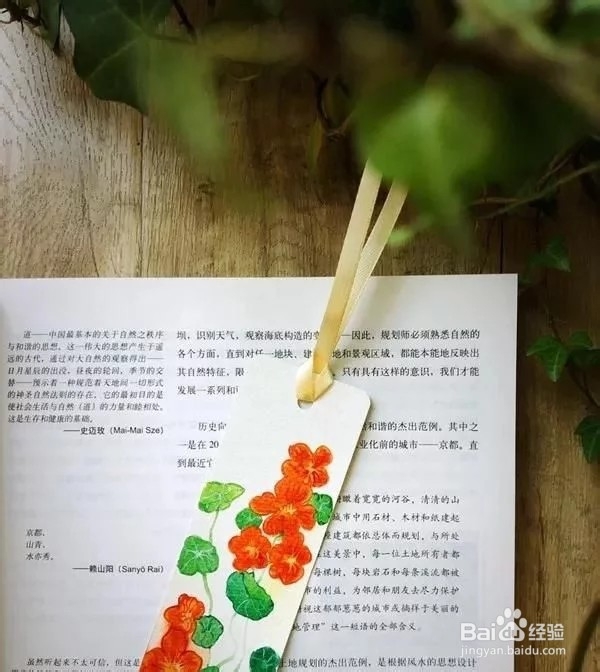 道——中国最基本的关于自然之秩序
与和谐的思想。这一伟大的思想产生于遥
远的古代，通过对大自然的观察得出——
日月星辰的出没，昼夜的轮回，季节的交
替——预示着一种规范着天地间一切形式
的神圣自然法则的存在。它的最初目的是
使社会生活与自然（道）的力量和睦相处。
这是生存和健康的基础。
——史迈玫（Mai-Mai Sze）
京都，
山青，
水亦秀。
——赖山阳（Sanyō Rai）
虽然听起来不太可信，但这是
坝，识别天气，观察海底构造的 ——因此，规划师必须熟悉自然的
各个方面，直到对任一地块、建 地和景观区域，都能本能地反映出
其自然特征，限 只有具有这样的意识，我们才能
发展一系列和
历史向 和谐的杰出范例。其中之
一是在 20 业化前的城市——京都。直
到最近
瞰着宽宽的河谷，清清的山
城市中用石材、木材和纸建起
建筑都依总体而规划，与所处
这美景中，每一位土地所有者都
每棵树，每块岩石和每条溪流都被
市的利益，为邻居和朋友去尽力保护
视这郁郁葱葱的城市反摘样于美丽的
地管理”这一短语的全部含义。
土地规划的杰出范例，是根据风水的思想设计
Baidu 经验
jingyan.baidu.com